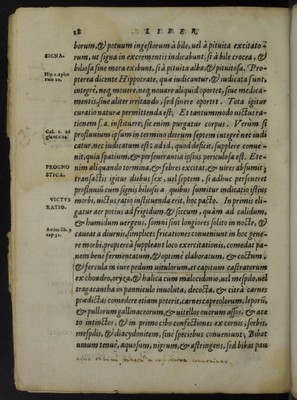 28 LIBER
borum, & potuum ingestorum à bile, uel à pituita excitato-
SIGNA.
rum, ut signa in excrementis indicabunt, si à bile crocea, &
biliosa sine mora exibunt, si à pituita alba, & pituitosa. Pro-
pterea dicente Hippocrate, quæ iudicantur, & iudicata sunt,
integrè, neq; mouere, neq; nouare aliquid oportet, siue medica-
mentis, siue aliter irritando, sed sinere oportet. Tota igitur
curatio naturæ permittenda est, Et tantummodo uictus ra-
tionem s.a. instituere, sic enim purgatur corpus. Verum si
profluuium ipsum in termino dierum septem integrè nec iudi
catur, nec iudicatum est: ad id, quod deficit, supplere conue-
nit, quia spatium, & perseuerantia ipsius periculosa est. Ete-
PROGNO
STICA.
nim aliquando tormina, & febres excitat, & uires absumit:
transactis igitur diebus sex, uel septem, si adhuc perseueret
profluuiũ cum signis biliosi: a quibus sumitur indicatio istius
VICTVS
RATIO.
morbi, uictus ratio instituenda erit, hoc pacto. In primis eli-
gatur aer potius ad frigidum, & siccum, quàm ad calidum,
& humidum uergens, somni sint longiores solito in nocte, &
caueat a diurnis, simplices fricationes conueniunt in hoc gene-
re morbi, propterea suppleant loco exercitationis, comedat pa-
nem bene fermentatum, & optimè elaboratum, & coctum,
& fercula in iure pedum uitulorum, et capitum castratorum
ex chondro, oryza, & halica cum malo cidonio, uel mespilo, uel
tragacantha in panniculo inuoluta, decocta, & citrà carnes
prædictas comedere etiam poteris, carnes capreolorum, leporũ,
& pullorum gallinaceorum, & uitellos ouorum assos, & ace
to intinctos, & in primo cibo confectiones ex cornis, sorbis,
mespilis, & diacydonitem, sine speciebus conueniunt, Bibat
uinum tenuè, aquosum, nigrum, & astringens, sed bibat pau